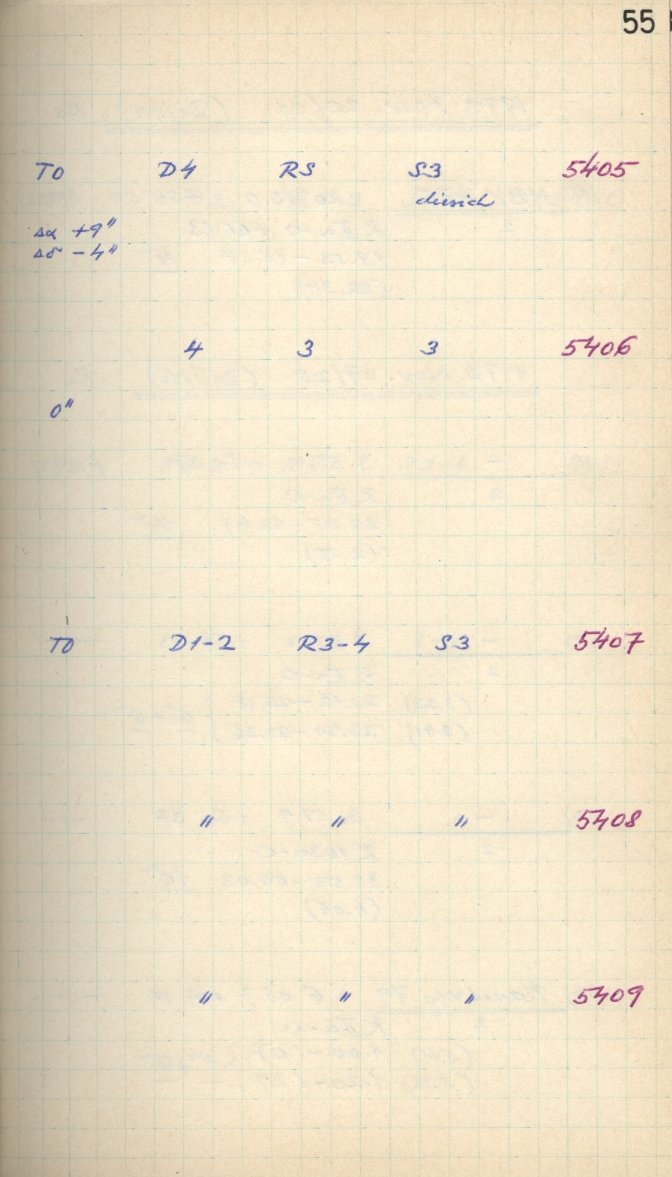 55
TO D4 RS S3 5405
diesich
Δα +9"
Δδ -4"
4 3 3 5406
0"
TO D1-2 R3-4 S3 5407
" " " 5408
" " " 5409